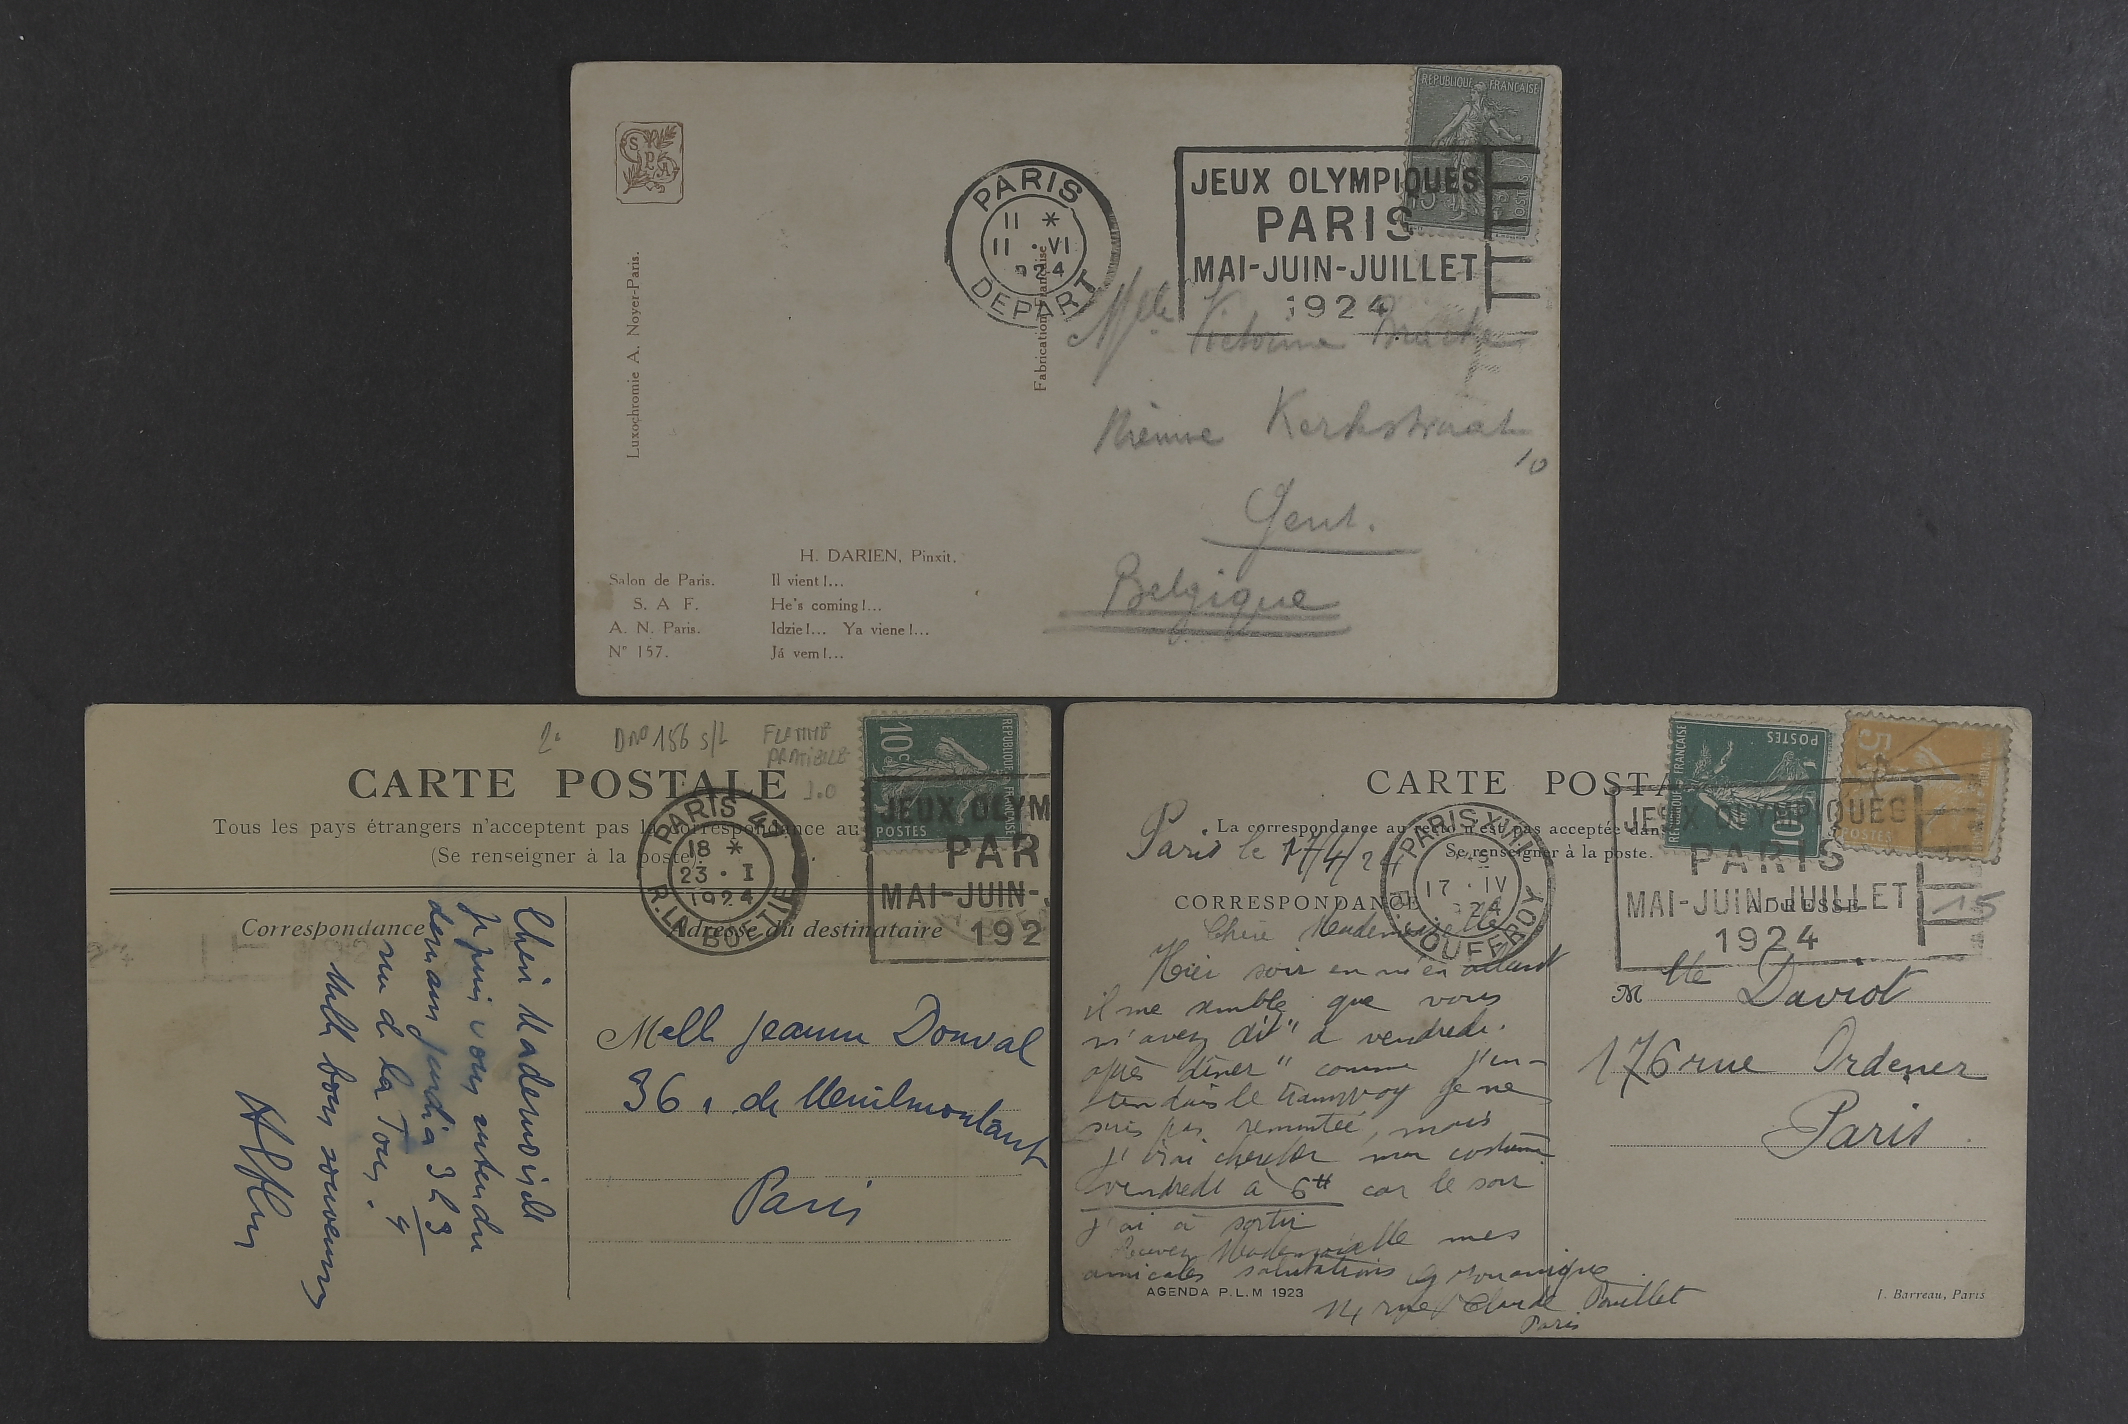 S P A
Luxochromie A. Noyer-Paris.
Fabrication Française
PARIS
11 *
11 · VI
924
DEPART
JEUX OLYMPIQUES
PARIS
MAI-JUIN-JUILLET
1924
REPUBLIQUE FRANÇAISE
15
POSTES
Mlle Victorine
Nieuwe Kerkstraat
10
Gent.
Belgique
H. DARIEN, Pinxit.
Salon de Paris. Il vient !...
S. A F. He's coming !...
A. N. Paris. Idzie !... Ya viene !...
N° 157. Já vem !...
2. DNO 156 s/L FLAMME
CARTE POSTALE
Tous les pays étrangers n'acceptent pas la correspondance au
(Se renseigner à la poste).
PARIS 47
18 *
23 · I
1924
R. LA BOETIE
10c
REPUBLIQUE FRANÇAISE
POSTES
JEUX OLYM
PAR
MAI-JUIN-J
192
Correspondance
Adresse du destinataire
Chère Mademoiselle
Je puis vous entendre
demain jeudi à 3h 3/4
rue de la Tour.
Mille bons souvenirs
Melle Jeanne Donval
36, de Menilmontant
Paris
CARTE POSTA
La correspondance au recto n'est pas acceptée dans
Se renseigner à la poste.
Paris le 17/4/24
PARIS XVII
17 · IV
24
R. JOUFFROY
REPUBLIQUE FRANÇAISE
10
POSTES
5c
POSTES
JEUX OLYMPIQUES
PARIS
MAI-JUIN-JUILLET
1924
15
CORRESPONDANCE
ADRESSE
Chère Mademoiselle
Hier soir en m'en allant
il me semble que vous
m'avez dit "à vendredi
après dîner" comme j'en-
tendais le tramway je ne
suis pas remontée, mais
j'irai chercher mon costume
vendredi à 6H car le soir
j'ai à sortir
Recevez Mademoiselle mes
amicales salutations
14 rue Claude Pouillet
Paris
M lle Daviot
176 rue Ordener
Paris
AGENDA P.L.M 1923
I. Barreau, Paris